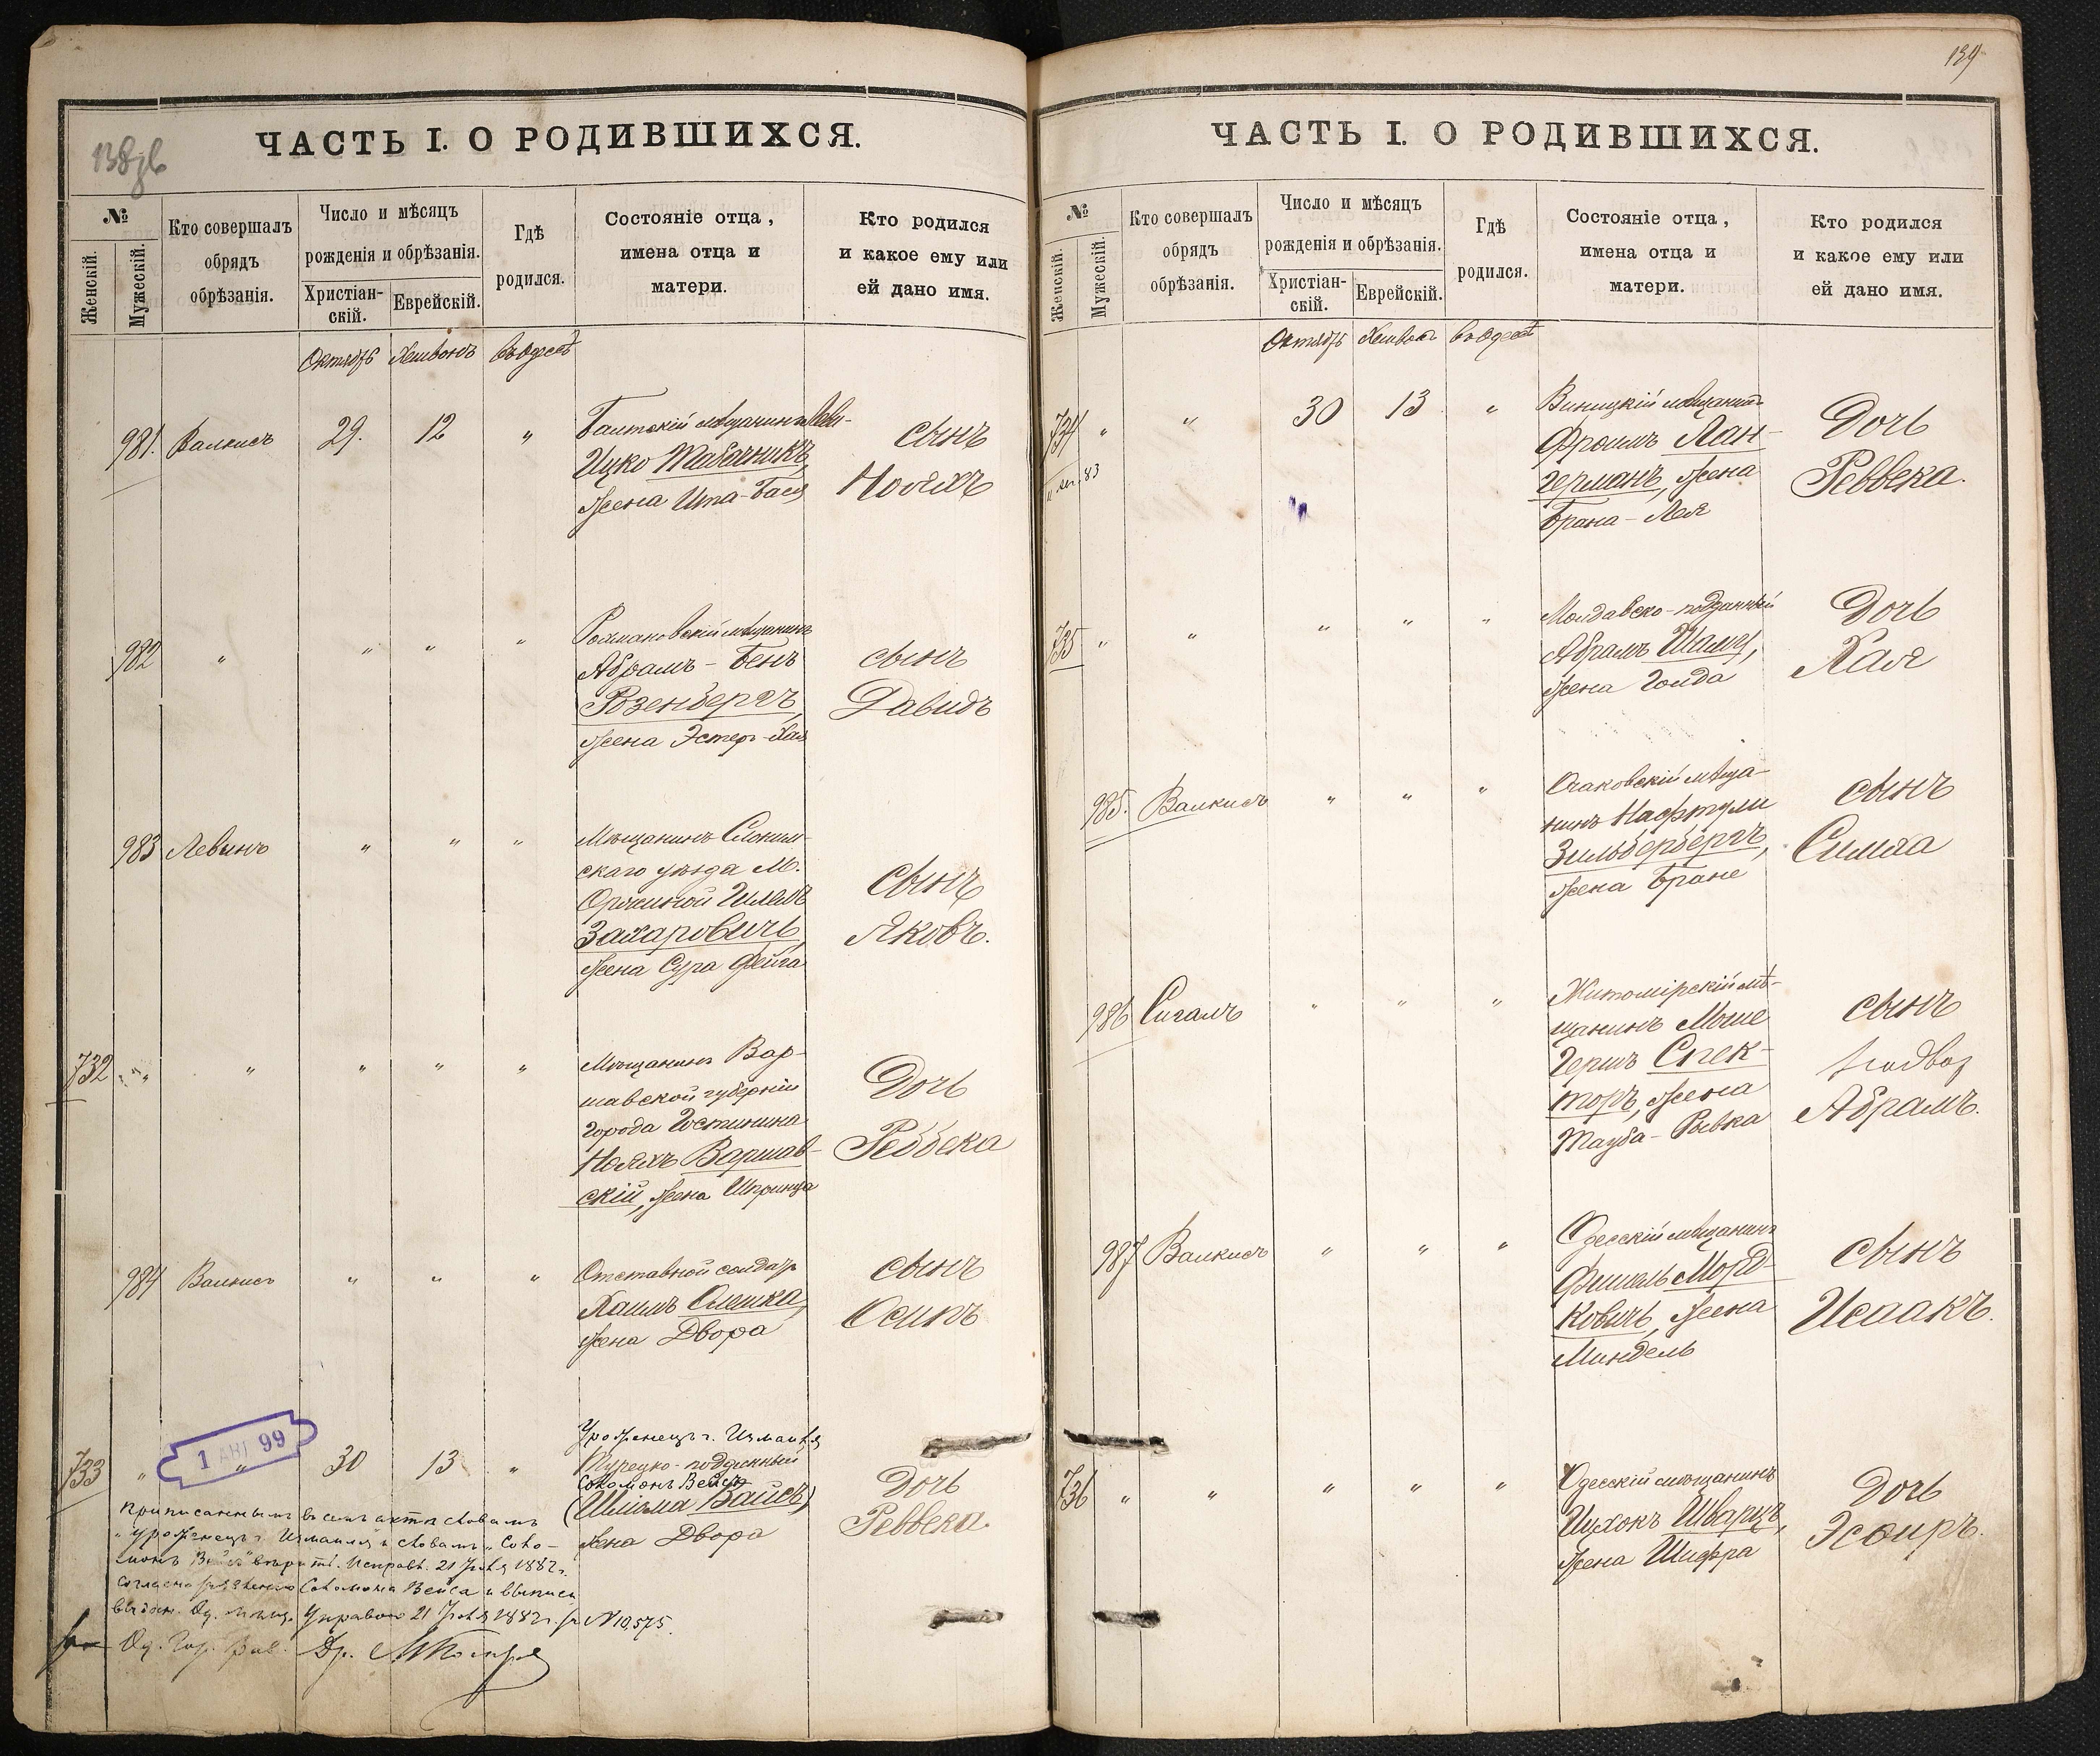 138 об
ЧАСТЬ I. О РОДИВШИХСЯ.
№
Женскій.
Мужескій.
Кто совершалъ
обрядъ
обрѣзанія.
Число и мѣсяцъ
рожденія и обрѣзанія.
Христіан-
скій.
Еврейскій.
Гдѣ
родился.
Состояніе отца,
имена отца и
матери.
Кто родился
и какое ему или
ей дано имя.
Октябрь Хешвонъ въ Одессѣ
981. Валкисъ 29. 12 "
Балтскій мѣщанинъ
Ицко Табачникъ,
жена Ита-Бася
сынъ
Нояхъ
982 " " " "
Романовскій мѣщанинъ
Абрамъ-Бенъ
Розенбергъ,
жена Эстеръ-Хая
сынъ
Давидъ
983 Левинъ " " "
Мѣщанинъ Слоним-
скаго уѣзда М.
Захаровичъ,
жена Сура Фейга
сынъ
Яковъ.
732 " " " " "
Мѣщанинъ Вар-
шавской губерніи
города Гостинина
Нояхъ Варшав-
скій, жена Шпринца
Дочь
Реввека
984 Валкисъ " " "
Отставной солдатъ
Хаимъ Слешка,
жена Двора
сынъ
Осипъ
1 АВГ 99
733 " " 30 13 "
Уроженецъ г. Измаила
Турецко-подданный
Соломонъ Вейсъ
(Шліома Вайсъ)
жена Двора
Дочь
Реввека.
приписаннымъ въ семъ актѣ словамъ
"уроженецъ г. Измаила и словамъ "Соло-
монъ Вейсъ" вѣрить. Исправл. 21 Іюля 1882 г.
согласно Соломона Вейса и выписи
выдан. Од. мѣщ. Управою 21 Іюля 1882 г. за № 10,575.
Од. Гор. Рав. Др.
139
ЧАСТЬ I. О РОДИВШИХСЯ.
№
Женскій.
Мужескій.
Кто совершалъ
обрядъ
обрѣзанія.
Число и мѣсяцъ
рожденія и обрѣзанія.
Христіан-
скій.
Еврейскій.
Гдѣ
родился.
Состояніе отца,
имена отца и
матери.
Кто родился
и какое ему или
ей дано имя.
Октябрь Хешвонъ въ Одессѣ
734 " " 30 13 "
83
Виницкій мѣщанинъ
Фроимъ Лан-
германъ, жена
Брана-Лея
Дочь
Реввека.
735 " " " " "
Молдавско-подданный
Абрамъ
жена Голда
Дочь
Хая
985. Валкисъ " " "
Очаковскій мѣща-
нинъ Нафтули
Зильбербергъ,
жена Бране
сынъ
Симха
986 Сигалъ " " "
Житомірскій мѣ-
щанинъ Моше
Гершъ Спек-
торъ, жена
Тауба-Рывка
сынъ
Абрамъ.
987 Валкисъ " " "
Одесскій мѣщанинъ
Фишель Морд-
ковичъ, жена
Миндель
сынъ
Исаакъ.
736 " " " " "
Одесскій мѣщанинъ
Ицхокъ Шварцъ,
жена Шифра
Дочь
Эсѳиръ.